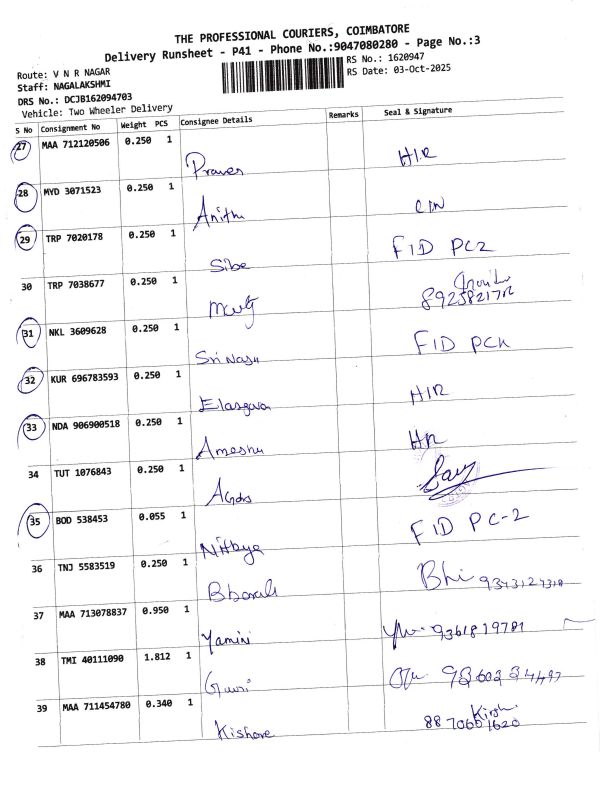 THE PROFESSIONAL COURIERS, COIMBATORE
Delivery Runsheet - P41 - Phone No.:9047080280 - Page No.:3
Route: V N R NAGAR
Staff: NAGALAKSHMI
DRS No.: DCJB162094703
Vehicle: Two Wheeler Delivery
RS No.: 1620947
RS Date: 03-Oct-2025
S No Consignment No Weight PCS Consignee Details Remarks Seal & Signature
27 MAA 712120506 0.250 1 Praven H1R
28 MYD 3071523 0.250 1 Anitha
29 TRP 7020178 0.250 1 Sibe F1D PC2
30 TRP 7038677 0.250 1
31 NKL 3609628 0.250 1 Sri Nash F1D
32 KUR 696783593 0.250 1 H1R
33 NDA 906900518 0.250 1 HR
34 TUT 1076843 0.250 1
35 BOD 538453 0.055 1 Nithya F1D PC-2
36 TNJ 5583519 0.250 1 Bhi
37 MAA 713078837 0.950 1 Yamini 9361819781
38 TMI 40111090 1.812 1
39 MAA 711454780 0.340 1 Kishore